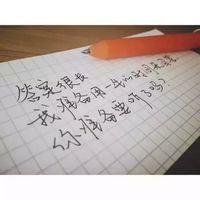 答案很长
我准备用一生的时间来回答
你准备要听了吗?